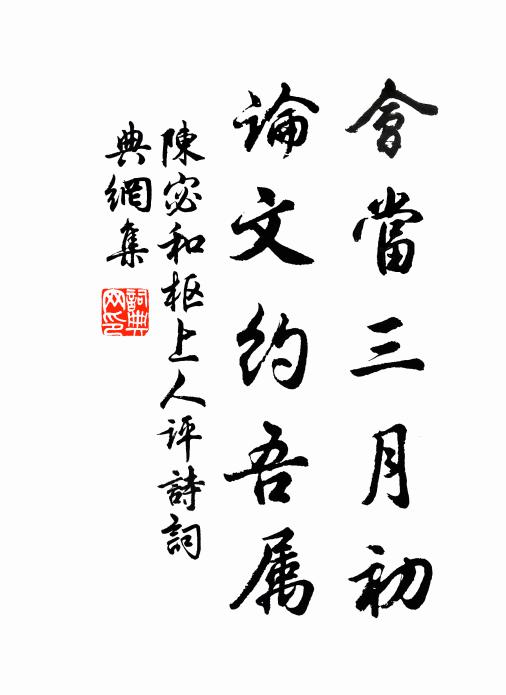 會當三月初
論文約吾属
陳宓和枢上人評詩詞
典網集
詞典
網印